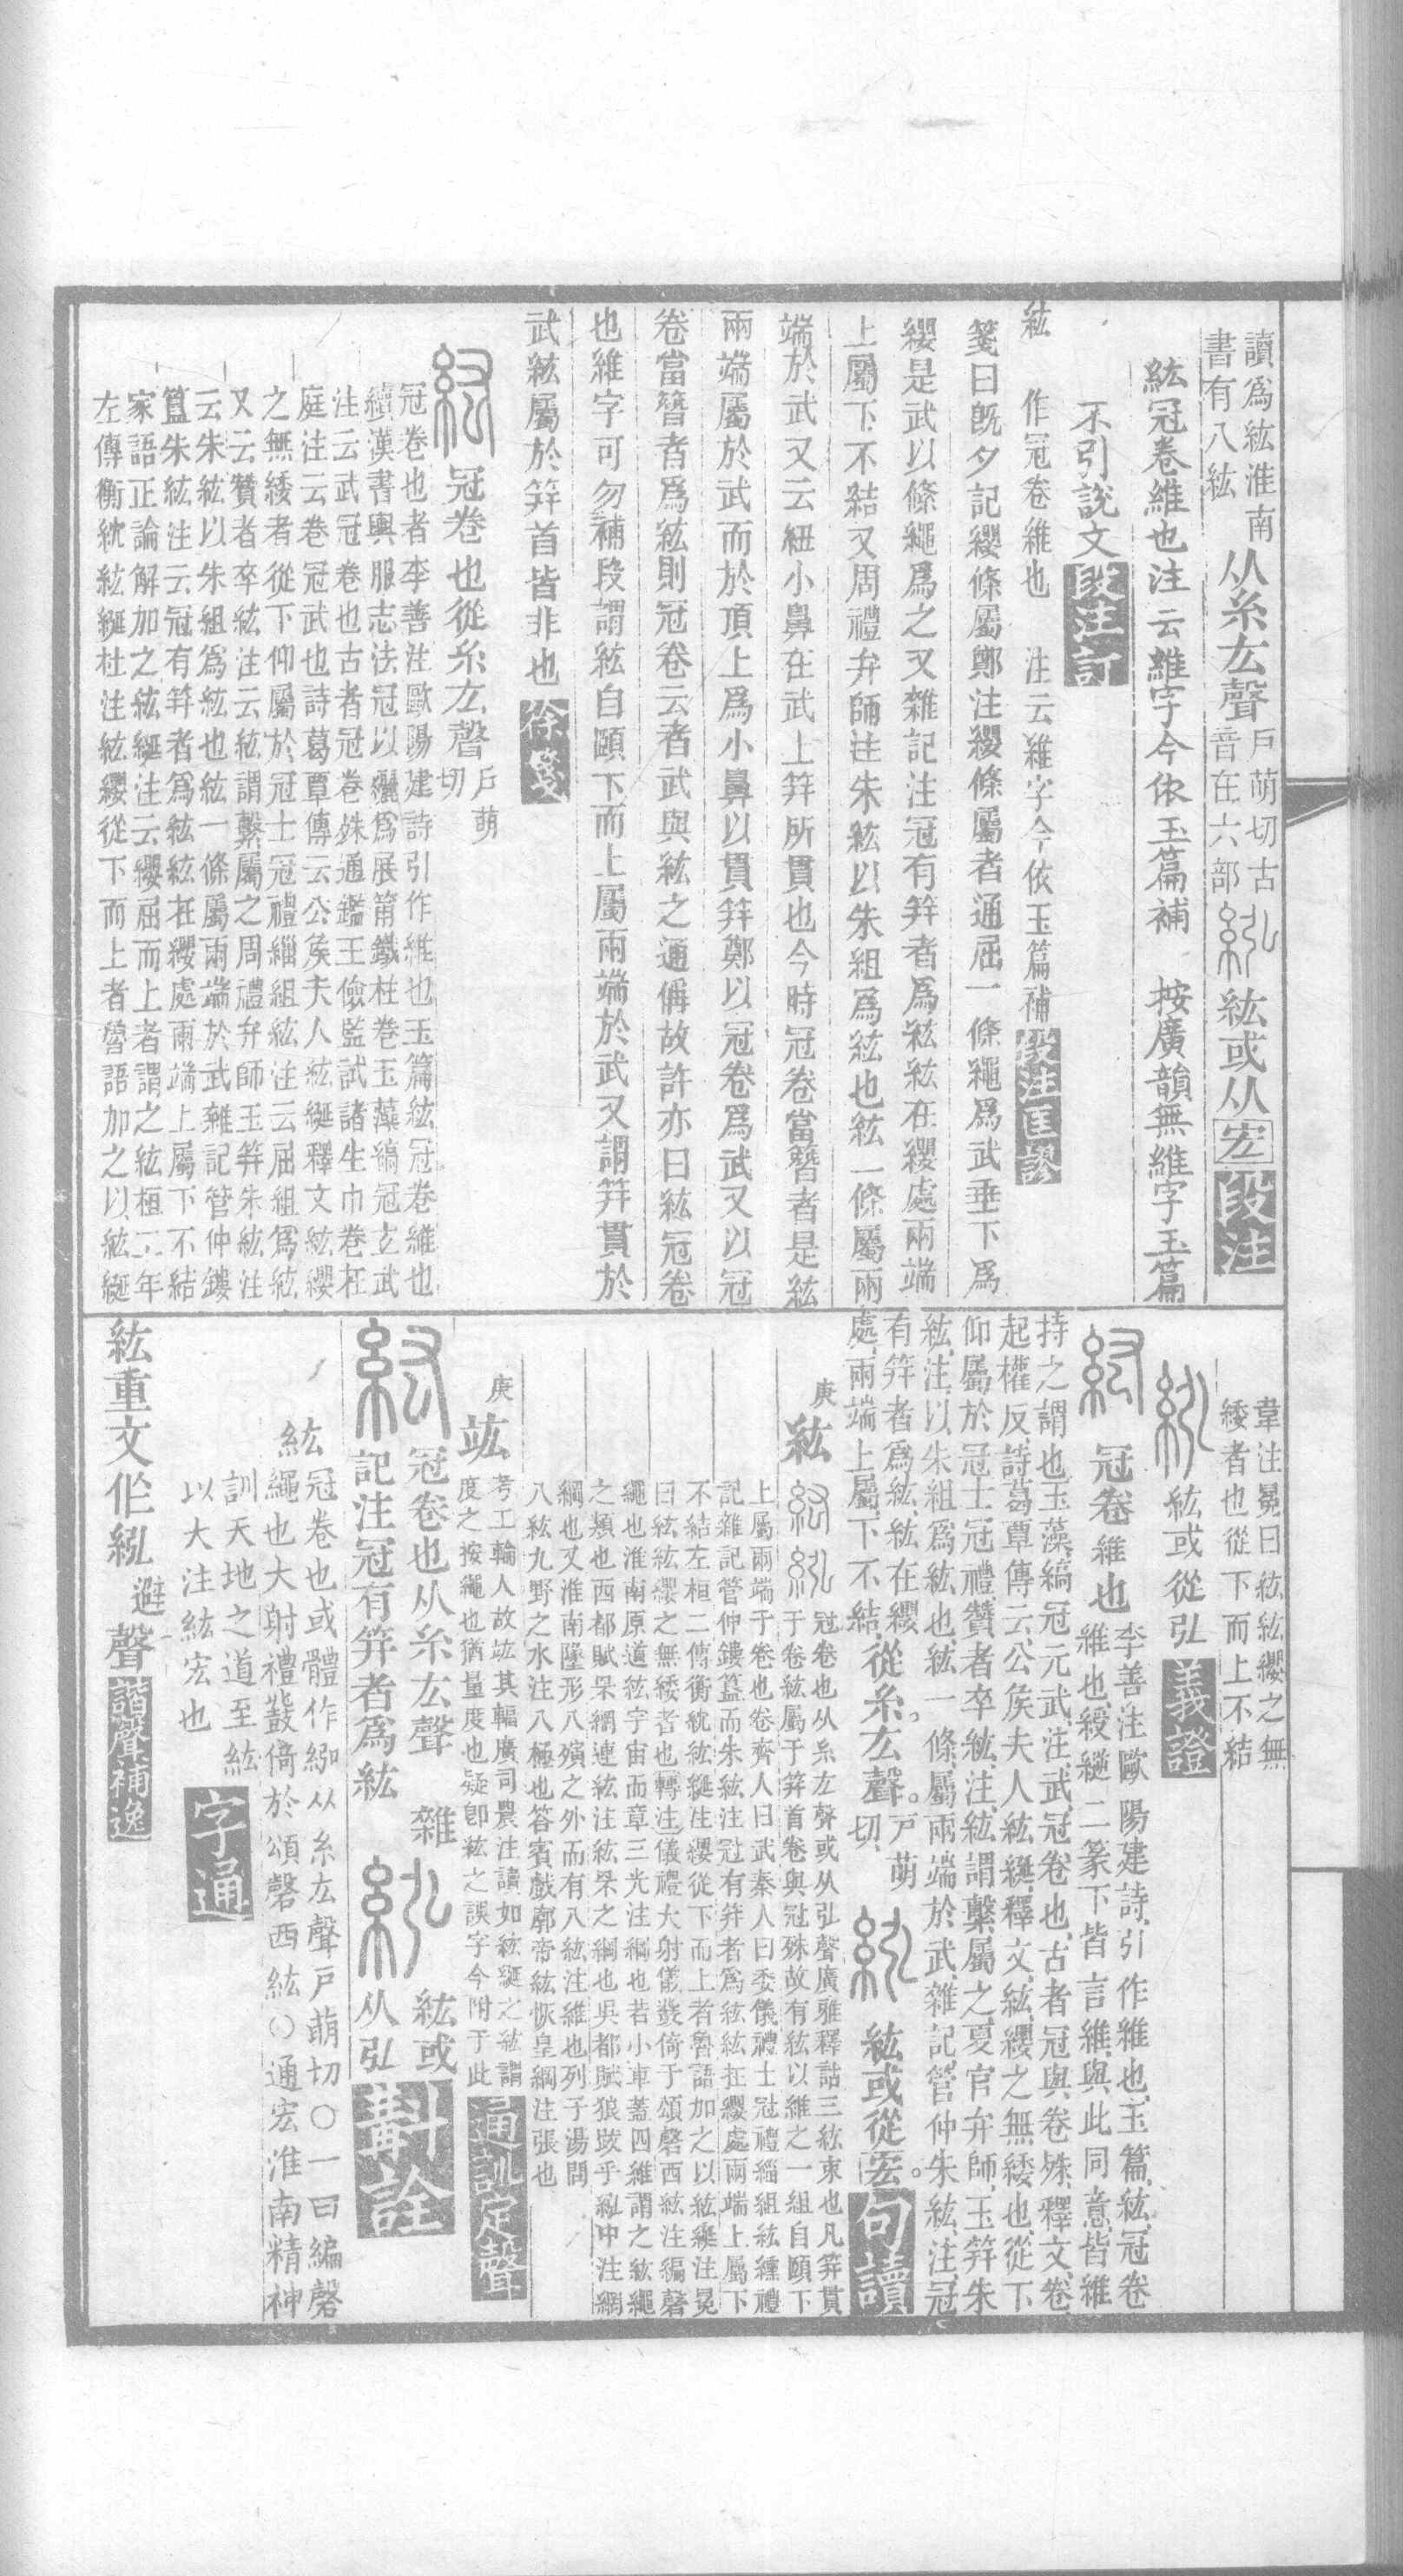 讀爲紘淮南
書有八紘
从糸厷聲
戶萌切古
音在六部
紭
紘或从宖
段注
紘冠卷維也注云維字今依玉篇補 按廣韻無維字玉篇
不引說文
段注訂
紘 作冠卷維也 注云維字今依玉篇補
段注匡謬
箋曰旣夕記纓條屬鄭注纓條屬者通屈一條繩爲武垂下爲
纓是武以條繩爲之又雜記注冠有笄者爲紘紘在纓處兩端
上屬下不結又周禮弁師注朱紘以朱組爲紘也紘一條屬兩
端於武又云紐小鼻在武上笄所貫也今時冠卷當簪者是紘
兩端屬於武而於頂上爲小鼻以貫笄鄭以冠卷爲武又以冠
卷當簪者爲紘則冠卷云者武與紘之通偁故許亦曰紘冠卷
也維字可勿補段謂紘自頤下而上屬兩端於武又謂笄貫於
武紘屬於笄首皆非也
徐箋
紘
冠卷也從糸厷聲
戶萌
切
冠卷也者李善注歐陽建詩引作維也玉篇紘冠卷維也
續漢書輿服志法冠以纚爲展筩鐵柱卷玉藻縞冠玄武
注云武冠卷也古者冠卷殊通鑑王儉監試諸生巾卷在
庭注云卷冠武也詩葛覃傳云公矦夫人紘綖釋文紘纓
之無緌者從下仰屬於冠士冠禮緇組紘注云屈組爲紘
又云贊者卒紘注云紘謂繫屬之周禮弁師玉笄朱紘注
云朱紘以朱組爲紘也紘一條屬兩端於武雜記管仲鏤
簋朱紘注云冠有笄者爲紘紘在纓處兩端上屬下不結
家語正論解加之紘綖注云纓屈而上者謂之紘桓二年
左傳衡紞紘綖杜注紘纓從下而上者魯語加之以紘綖
韋注冕曰紘紘纓之無
緌者也從下而上不結
紭
紘或從弘
義證
紘
冠卷維也
李善注歐陽建詩引作維也玉篇紘冠卷
維也綬䋿二篆下皆言維與此同意皆維
持之謂也玉藻縞冠元武注武冠卷也古者冠與卷殊釋文卷
起權反詩葛覃傳云公矦夫人紘綖釋文紘纓之無緌也從下
仰屬於冠士冠禮贊者卒紘注紘謂繫屬之夏官弁師玉笄朱
紘注以朱組爲紘也紘一條屬兩端於武雜記管仲朱紘注冠
有笄者爲紘紘在纓
處兩端上屬下不結
從糸厷聲
戶萌
切
紭
紘或從宖
句讀
庚
紘
紘
紭
冠卷也从糸厷聲或从弘聲廣雅釋詁三紘束也凡笄貫
于卷紘屬于笄首卷與冠殊故有紘以維之一組自頤下
上屬兩端于卷也卷齊人曰武秦人曰委儀禮士冠禮緇組紘纁禮
記雜記管仲鏤簋而朱紘注冠有笄者爲紘紘在纓處兩端上屬下
不結左桓二傳衡紞紘綖注纓從下而上者魯語加之以紘綖注冕
曰紘紘纓之無緌者也轉注儀禮大射儀鼗倚于頌磬西紘注編磬
繩也淮南原道紘宇宙而章三光注綱也若小車蓋四維謂之紘繩
之類也西都賦罘網連紘注紘罘之綱也吳都賦狼跋乎紭中注網
綱也又淮南墬形八殥之外而有八紘注維也列子湯問
八紘九野之水注八極也答賓戲廓帝紘恢皇綱注張也
庚
竑
考工輪人故竑其輻廣司農注讀如紘綖之紘謂
度之按繩也猶量度也疑卽紘之誤字今附于此
通訓定聲
紘
冠卷也从糸厷聲 雜
記注冠有笄者爲紘
紭
紘或
从弘
斠詮
紘
冠卷也或體作紭从糸厷聲戶萌切〇一曰編磬
繩也大射禮鼗倚於頌磬西紘〇通宏淮南精神
訓天地之道至紘
以大注紘宏也
字通
紘重文作紭
避
聲
諧聲補逸